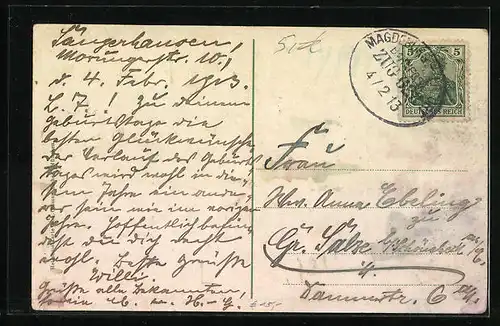 Sangerhausen,
Moringerstr. 10,
d. 4. Febr. 1913.
L. F.! Zu deinem
Geburtstage die
besten Glückwünsche
der Verlauf des Geburts
tages wird wohl in die-
sem Jahre ein
sein wie im vorigen
Jahre. Hoffentlich
dass du dich recht
wohl. Beste Grüße
Willi
Grüße alle Bekannten,
5
MAGDEBURG
ZUG
4/2 13
5 5
DEUTSCHES REICH
Frau
Anna Ebeling
zu
Gr. Salze b/Schönebeck
Dammstr. 6